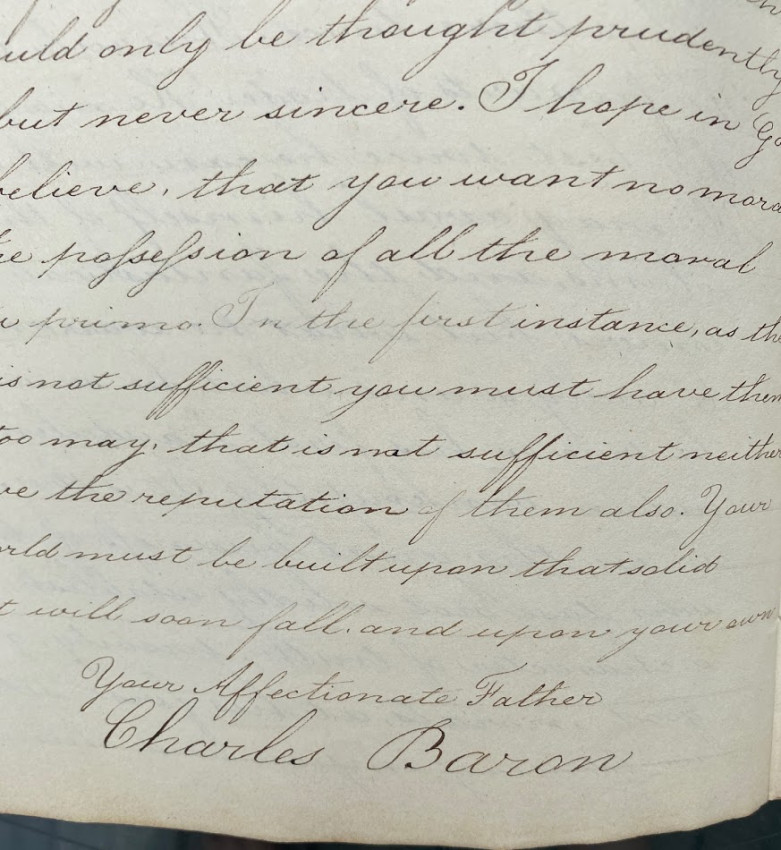 uld only be thought prudently
but never sincere. I hope in Go
believe, that you want no mora
he possession of all the moral
primo. In the first instance, as the
is not sufficient you must have them
too may, that is not sufficient neither
ve the reputation of them also. Your
orld must be built upon that solid
t will soon fall, and upon your own
Your Affectionate Father
Charles Baron